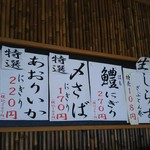 生しらす
108円
鱧にぎり
はも
270円
特選
〆さば
にぎり
170円
特選
あおりいか
にぎり
220円